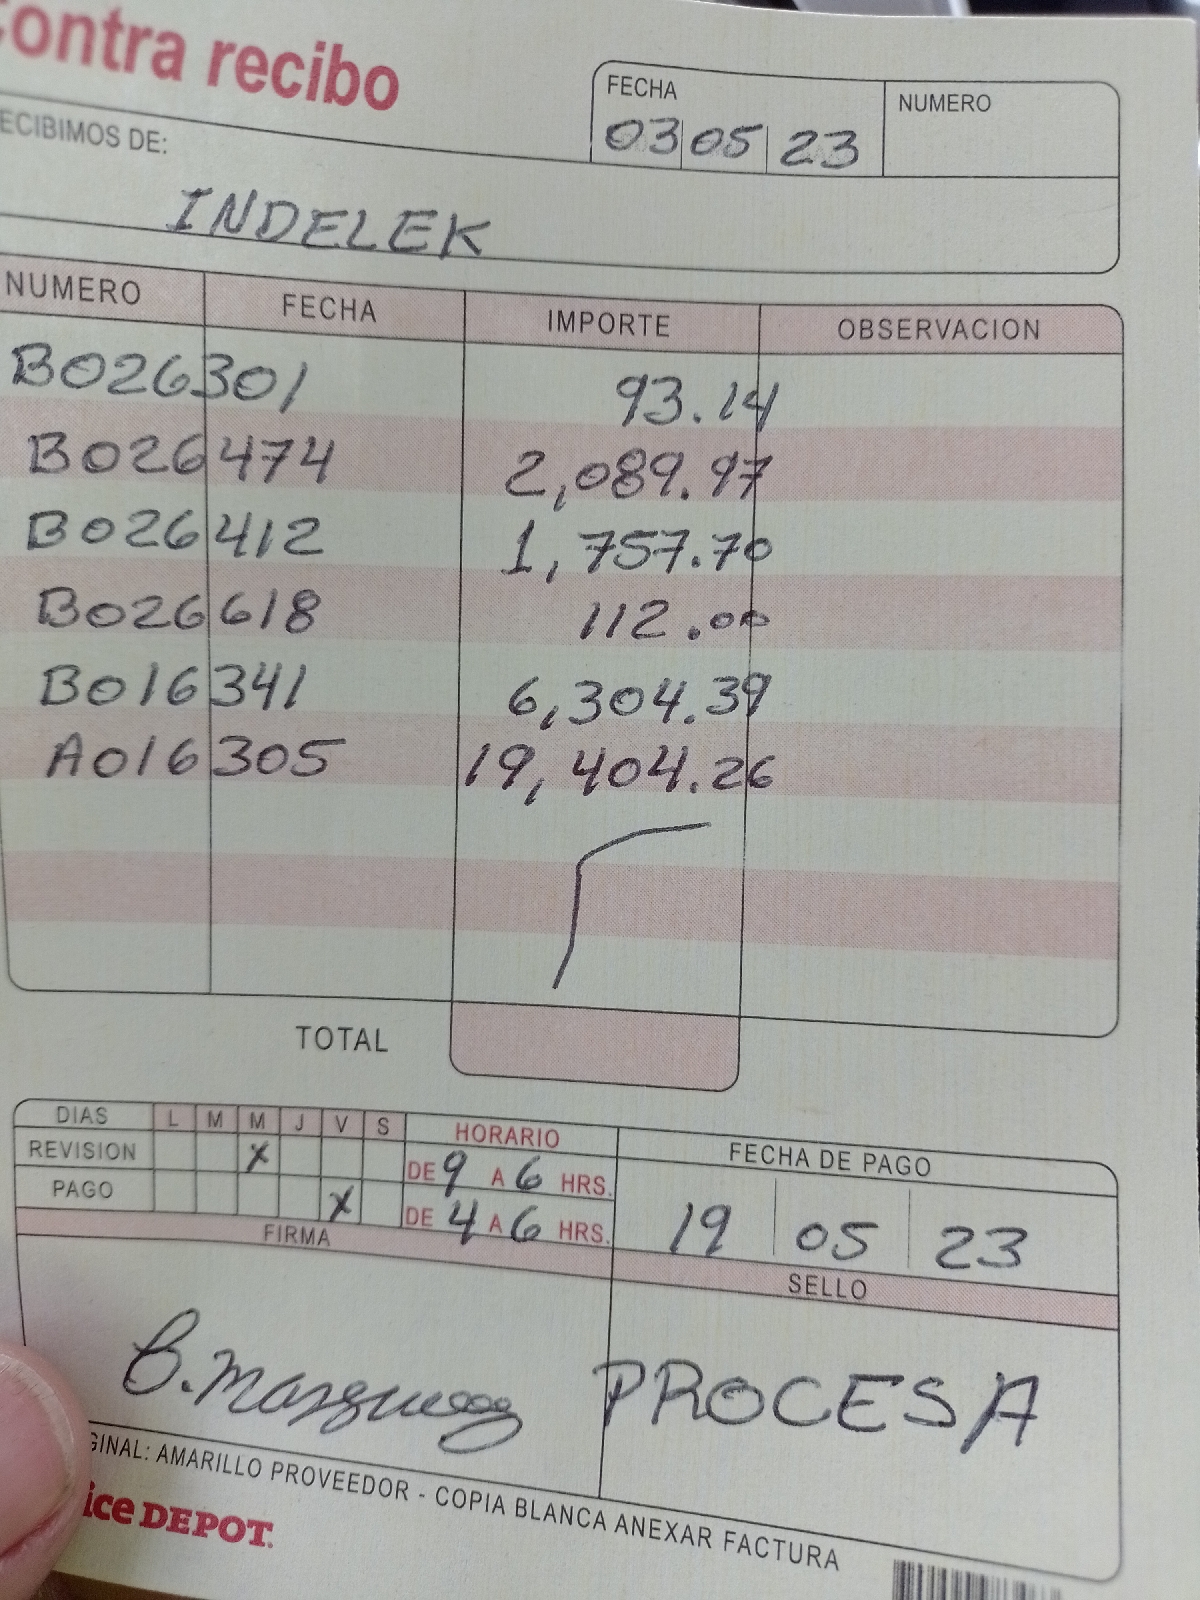 Contra recibo
FECHA NUMERO
03 05 23
RECIBIMOS DE:
INDELEK
NUMERO FECHA IMPORTE OBSERVACION
B026301 93.14
B026474 2,089.97
B026412 1,757.70
B026618 112.00
B016341 6,304.39
A016305 19,404.26
TOTAL
DIAS L M M J V S HORARIO FECHA DE PAGO
REVISION X DE 9 A 6 HRS.
PAGO X DE 4 A 6 HRS. 19 05 23
FIRMA SELLO
B. Marquez PROCESA
GINAL: AMARILLO PROVEEDOR - COPIA BLANCA ANEXAR FACTURA
ice DEPOT.